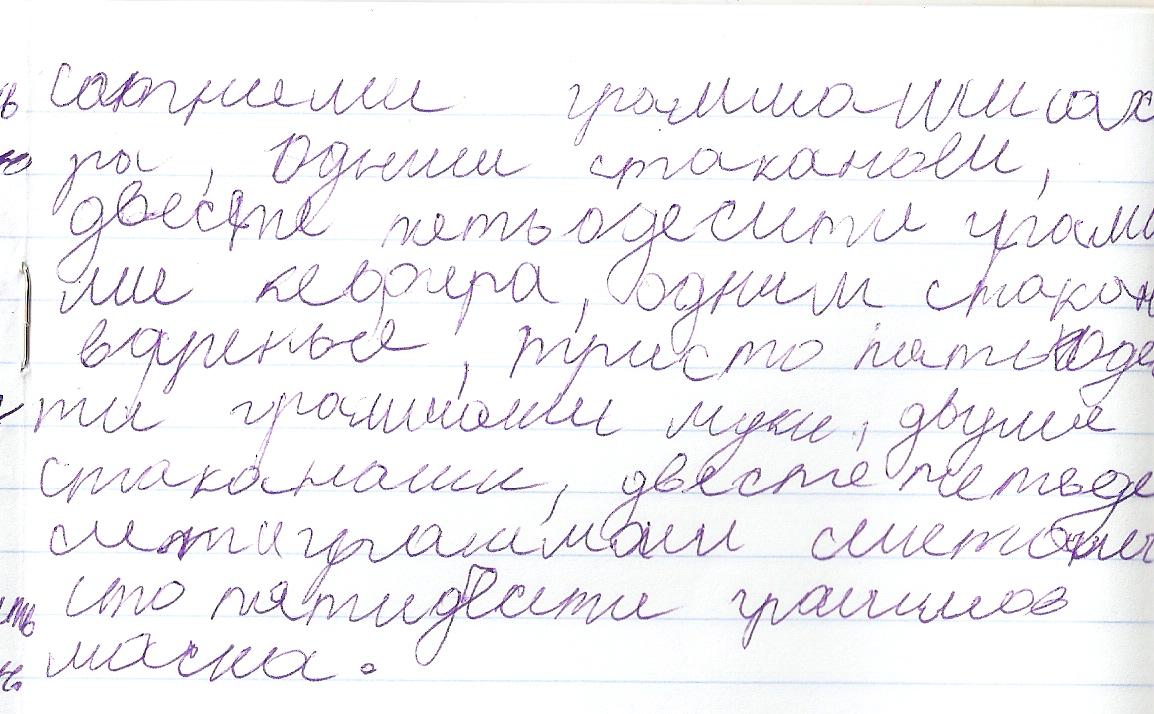 сотнями граммами сах
ра, одним стаканом,
двести пятьодесити грам
ми кефира, одним стакан
варенье, тристо пятьоде
ти граммами муки, двумя
стаканами, двести петьде
сити граммами сметаны
сто пятидесити граммов
масла.